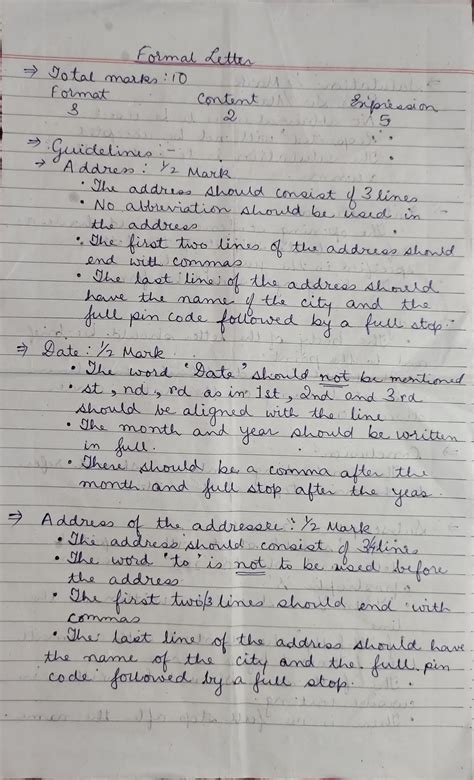 Formal Letter
⇒ Total marks : 10
Format Content Expression
3 2 5
⇒ Guidelines :-
→ Address : 1/2 Mark
• The address should consist of 3 lines
• No abbreviation should be used in
the address
• The first two lines of the address should
end with commas
• The last line of the address should
have the name of the city and the
full pin code followed by a full stop.
⇒ Date : 1/2 Mark
• The word 'Date' should not be mentioned
• st, nd, rd as in 1st, 2nd and 3rd
should be aligned with the line
• The month and year should be written
in full.
• There should be a comma after the
month and full stop after the year.
⇒ Address of the addressee : 1/2 Mark
• The address should consist of 3/4 lines
• The word 'to' is not to be used before
the address
• The first two/3 lines should end with
commas
• The last line of the address should have
the name of the city and the full pin
code followed by a full stop.